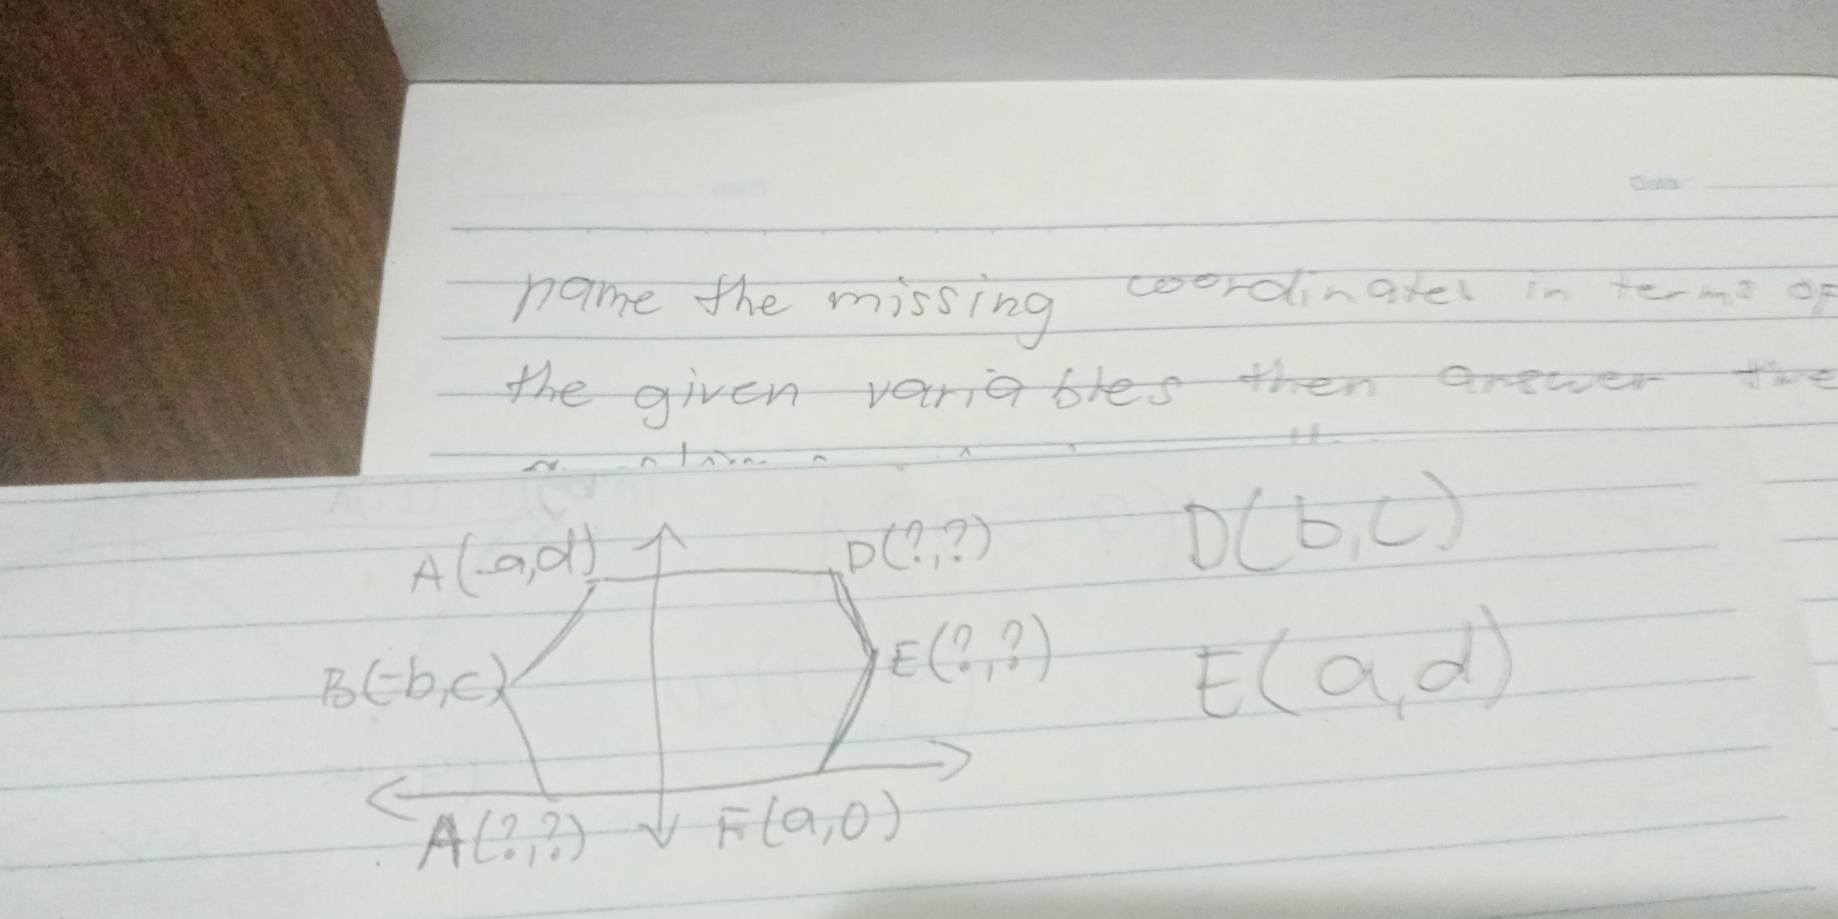 Date
name the missing coordinates in terms of
the given variables then answer the
A(-a,d)
D(?,?)
D(b,c)
B(-b,c)
E(?,?)
E(a,d)
A(?,?)
F(a,0)